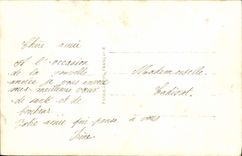 Chère amie
A l'occasion
de la nouvelle
année je vous envoie
mes meilleurs vœux
de santé et de
bonheur.
Votre amie qui pense à vous
Mademoiselle